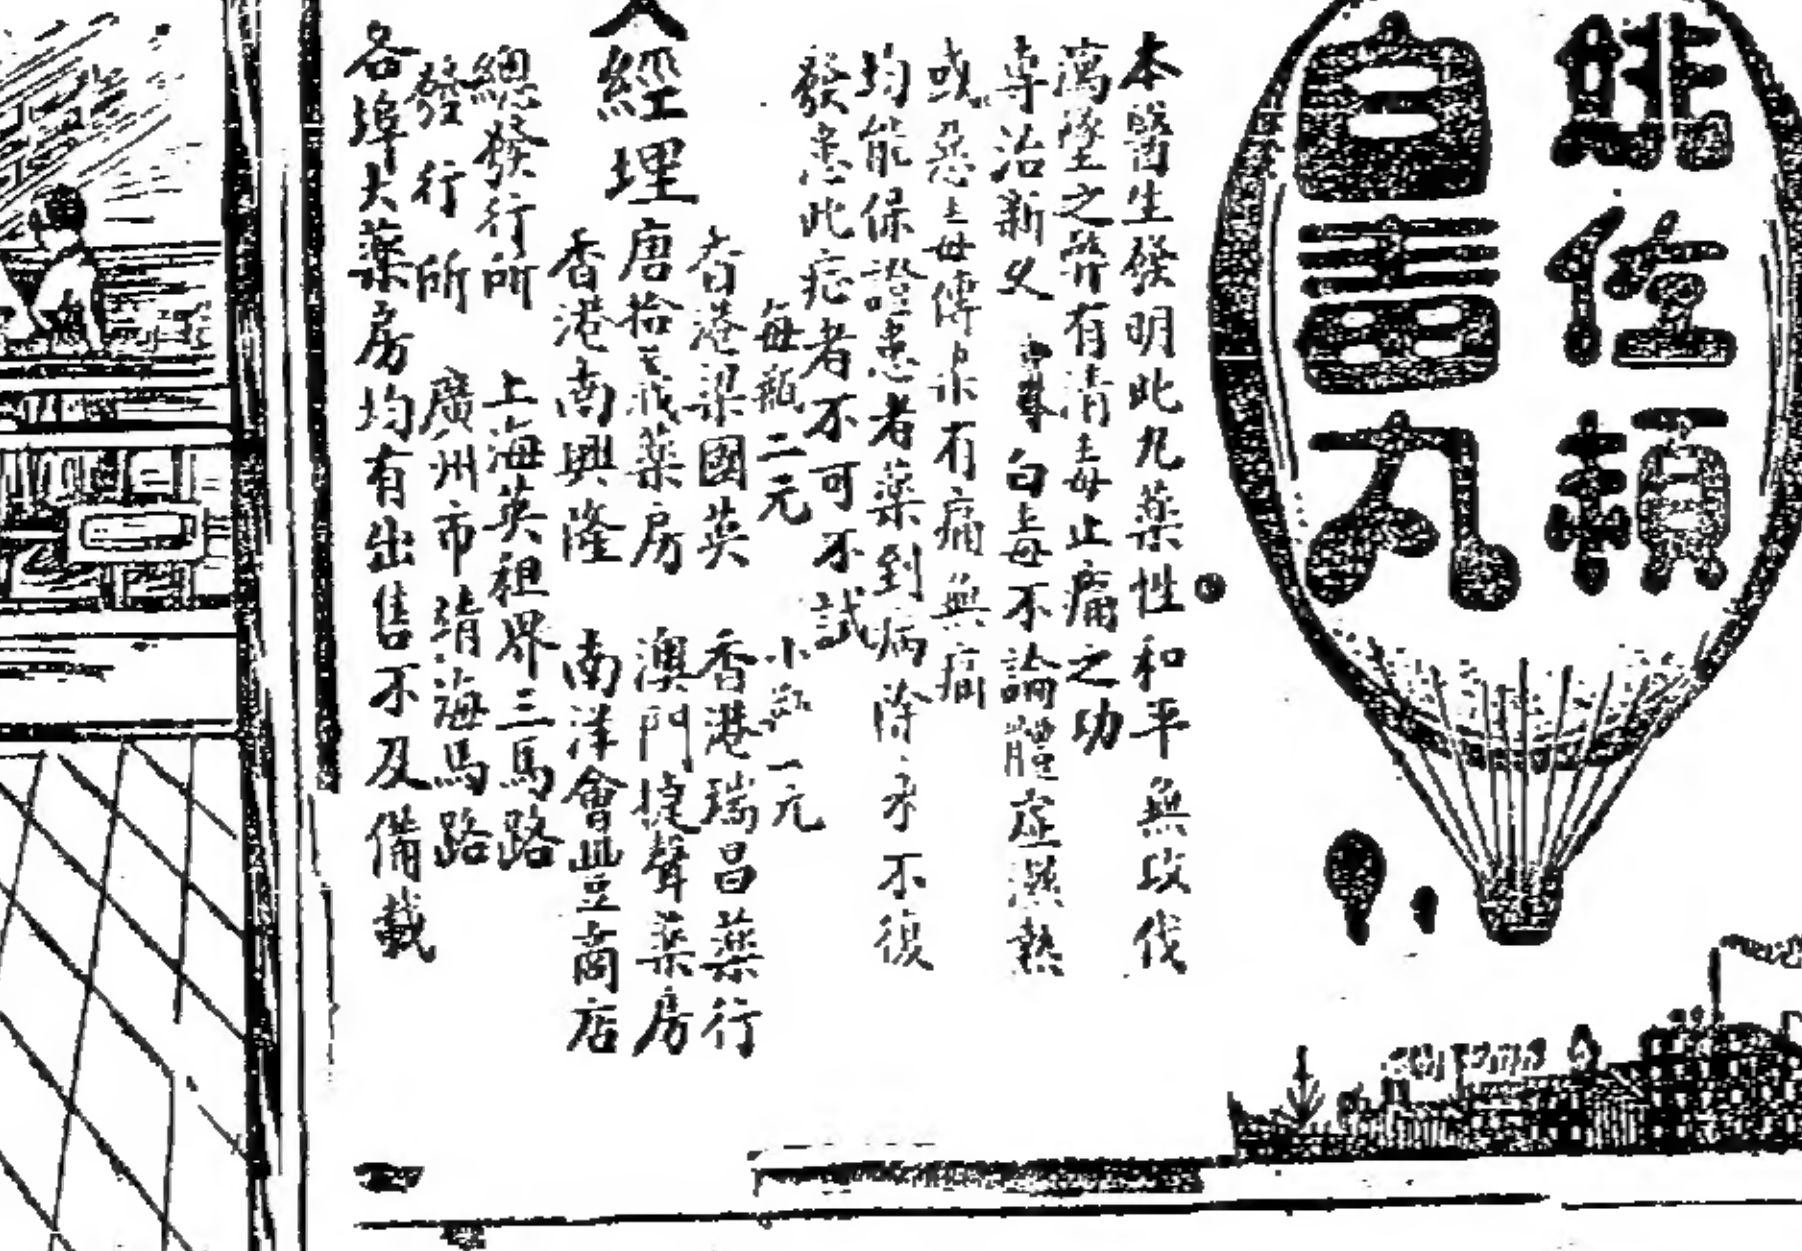 姚佐頓
白毒丸
本醫生發明此九藥性和平無攻伐
瀉墜之弊有清毒止痛之功
專治新久 白毒不論體虛濕熱
或惡毒傳染有痛無痛
均能保證患者藥到病除永不復
發患此症者不可不試
每瓶二元 小瓶一元
香港梁國英 香港瑞昌藥行
唐拾義藥房 澳門捷聲藥房
香港南興隆 南洋會豐商店
經理
總發行所 上海英租界三馬路
發行所 廣州市靖海馬路
各埠大藥房均有出售不及備載